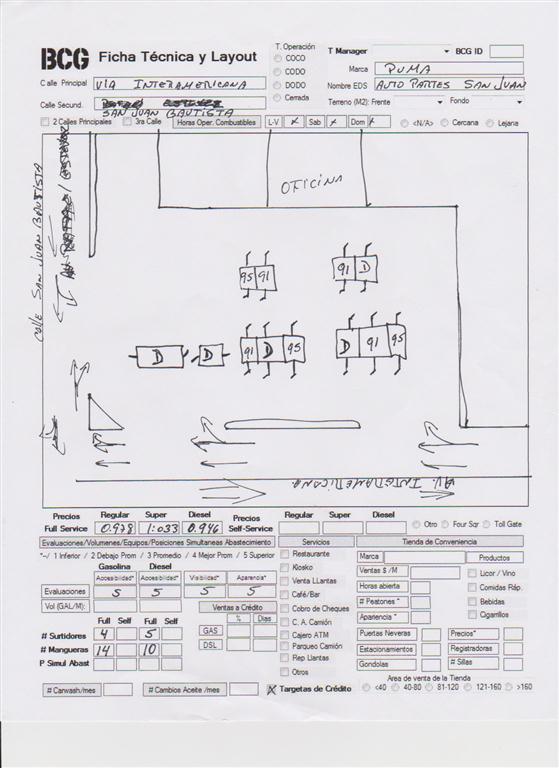 BCG Ficha Técnica y Layout
T. Operación
COCO
CODO
DODO
Cerrada
T Manager
BCG ID
Marca PUMA
Calle Principal VIA INTERAMERICANA
Nombre EDS AUTO PARTES SAN JUAN
Calle Secund.
SAN JUAN BAUTISTA
Terreno (M2): Frente Fondo
2 Calles Principales 3ra Calle Horas Oper. Combustibles L-V Sab Dom <N/A> Cercana Lejana
OFICINA
CALLE SAN JUAN BAUTISTA
95 91
91 D
D
D
91 D 95
D 91 95
AV. INTERAMERICANA
Precios Regular Super Diesel Precios Regular Super Diesel
Full Service 0.978 1.033 0.946 Self-Service
Otro Four Sqr Toll Gate
Evaluaciones/Volumenes/Equipos/Posiciones Simultaneas Abastecimiento
Servicios
Tienda de Conveniencia
*--/ 1 Inferior / 2 Debajo Prom / 3 Promedio / 4 Mejor Prom / 5 Superior
Gasolina Diesel
Accesibilidad* Accesibilidad* Visibilidad* Aparencia*
Evaluaciones 5 5 5 5
Vol (GAL/M):
Ventas a Crédito
% Dias
GAS
DSL
Full Self Full Self
# Surtidores 4 5
# Mangueras 14 10
P Simul Abast
Restaurante
Kiosko
Venta LLantas
Café/Bar
Cobro de Cheques
C. A. Camión
Cajero ATM
Parqueo Camión
Rep Llantas
Otros
Marca
Ventas $ /M
Horas abierta
# Peatones *
Apariencia *
Productos
Licor / Vino
Comidas Ráp.
Bebidas
Cigarrillos
Puertas Neveras Precios*
Estacionamientos Registradoras
Gondolas # Sillas
# Carwash/mes # Cambios Aceite /mes X Targetas de Crédito
Area de venta de la Tienda
<40 40-80 81-120 121-160 >160